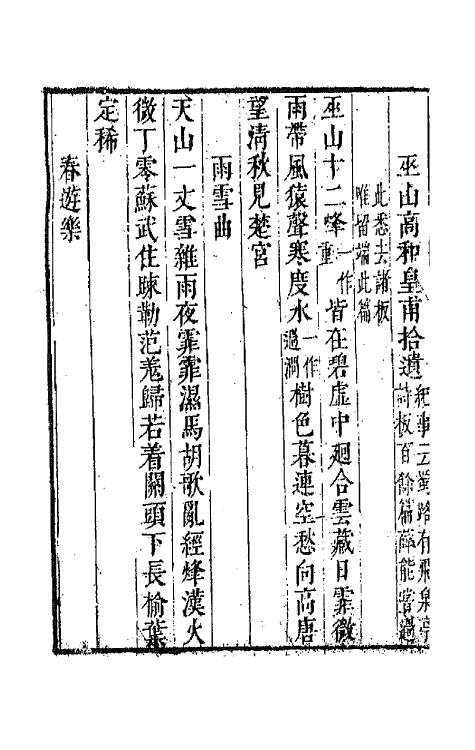 巫山高和皇甫拾遺紀事云蜀路有飛泉亭詩板百餘篇薛能嘗過
此悉去諸板唯留端此篇
巫山十二峰一作重皆在碧虛中廻合雲藏日霏微
雨帶風猿聲寒度水一作過澗樹色暮連空愁向高唐
望清秋見楚宮
雨雪曲
天山一丈雪雜雨夜霏霏濕馬胡歌亂經烽漢火
微丁零蘇武住踈勒范羗歸若着關頭下長榆葉
定稀
春遊樂